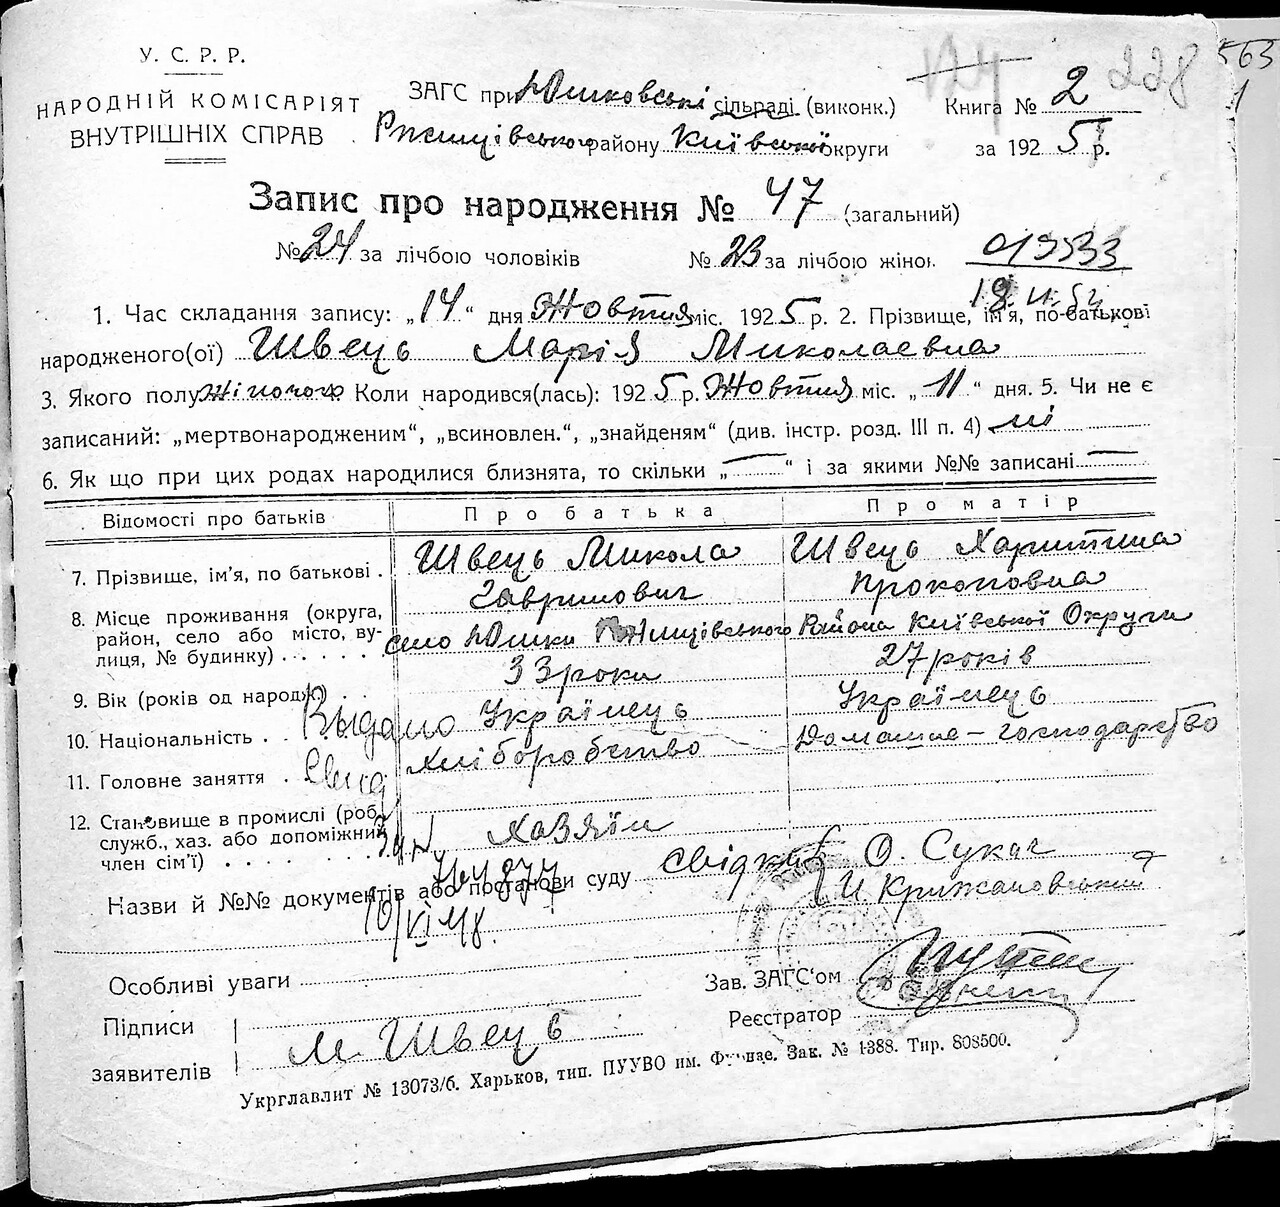 У. С. Р. Р.
НАРОДНІЙ КОМІСАРІЯТ
ВНУТРІШНІХ СПРАВ
ЗАГС при Юшковські сільраді (виконк.)
Ржищівського району Київської округи
124 228 563
1
Книга № 2
за 1925 р.
Запис про народження № 47 (загальний)
№ 24 за лічбою чоловіків № 23 за лічбою жінок.
019533
1. Час складання запису: „14“ дня Жовтня міс. 1925 р. 2. Прізвище, ім'я, по-батькові
народженого(ої) Швець Марія Миколаевна
3. Якого полу жіночого Коли народився(лась): 1925 р. Жовтня міс. „11“ дня. 5. Чи не є
записаний: „мертвонародженим“, „всиновлен.“, „знайденям“ (див. інстр. розд. III п. 4) ні
6. Як що при цих родах народилися близнята, то скільки „—“ і за якими №№ записані —
Відомості про батьків Про батька Про матір
7. Прізвище, ім'я, по батькові . Швець Микола Швець Харитина
Гаврилович Прокоповна
8. Місце проживання (округа,
район, село або місто, ву-
лиця, № будинку) . . . . . село Юшки Ржищівського Района Київської Округи
9. Вік (років од народж.) . . 33 роки 27 років
10. Національність . . Українець Українець
11. Головне заняття . Хліборобство Домашне-господарство
Выдано
12. Становище в промислі (роб.,
служб., хаз. або допоміжний
член сім'ї) . . . . . . Хазяїн
Назви й №№ документів або постанови суду свідки О. Сукач
И Крижановський
10/VI 48.
Особливі уваги
Зав. ЗАГС'ом
Підписи
заявителів М. Швець
Реєстратор
Укрглавлит № 13073/б. Харьков, тип. ПУУВО им. Фрунзе. Зак. № 1388. Тир. 808500.